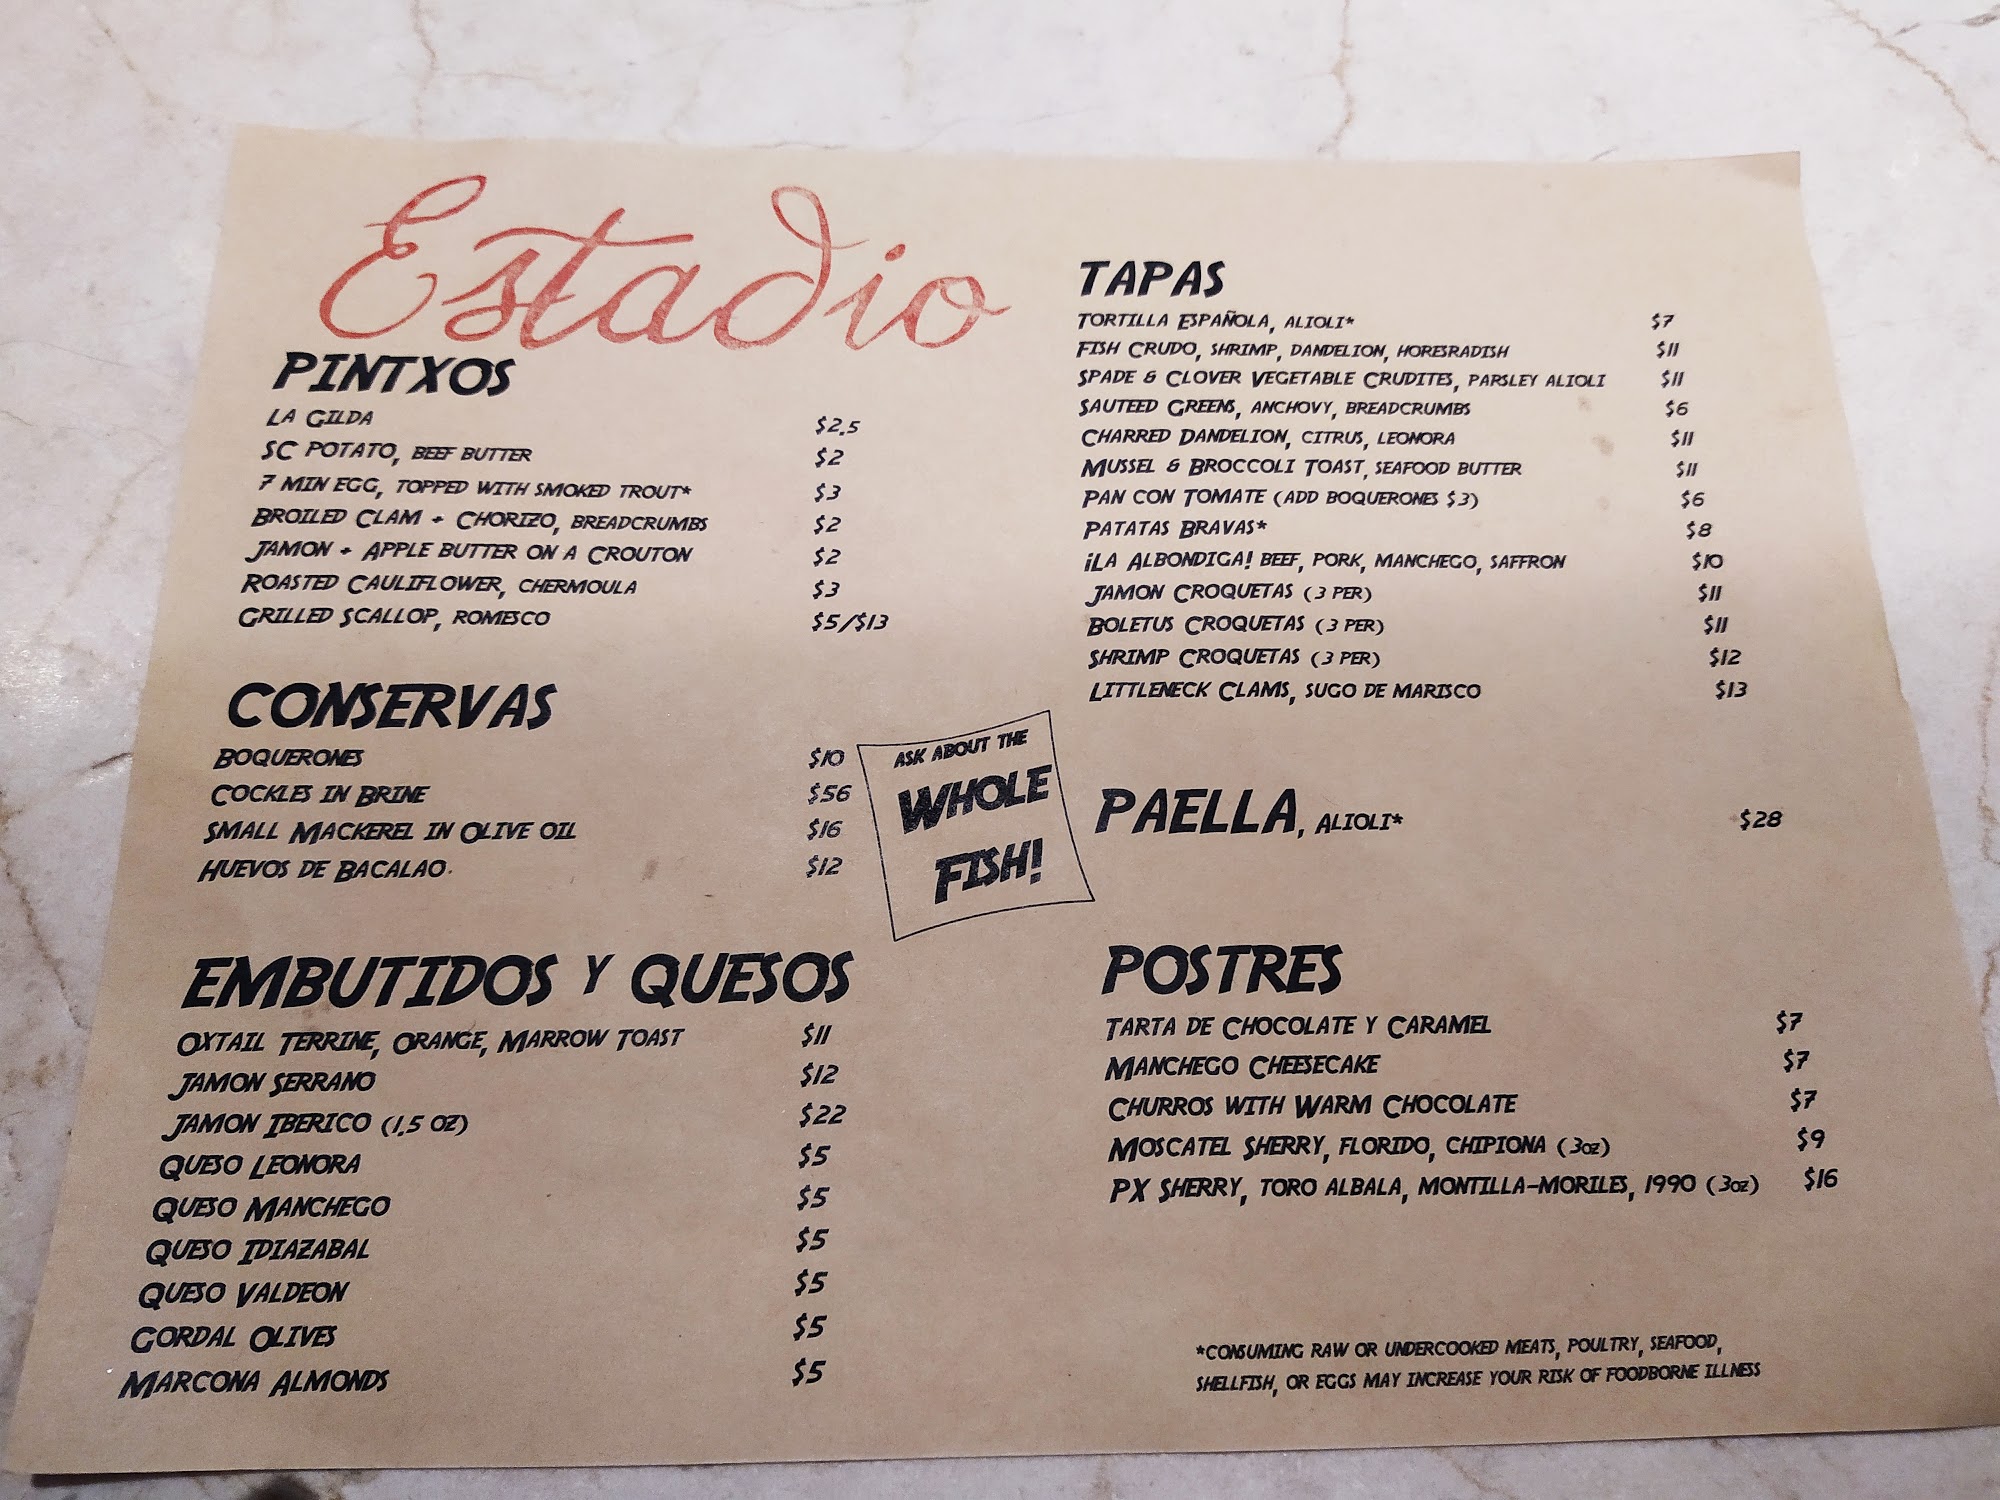 Estadio
PINTXOS
LA GILDA $2.5
SC POTATO, BEEF BUTTER $2
7 MIN EGG, TOPPED WITH SMOKED TROUT* $3
BROILED CLAM + CHORIZO, BREADCRUMBS $2
JAMON + APPLE BUTTER ON A CROUTON $2
ROASTED CAULIFLOWER, CHERMOULA $3
GRILLED SCALLOP, ROMESCO $5/$13
CONSERVAS
BOQUERONES $10
COCKLES IN BRINE $56
SMALL MACKEREL IN OLIVE OIL $16
HUEVOS DE BACALAO. $12
ASK ABOUT THE
WHOLE
FISH!
EMBUTIDOS Y QUESOS
OXTAIL TERRINE, ORANGE, MARROW TOAST $11
JAMON SERRANO $12
JAMON IBERICO (1.5 OZ) $22
QUESO LEONORA $5
QUESO MANCHEGO $5
QUESO IDIAZABAL $5
QUESO VALDEON $5
GORDAL OLIVES $5
MARCONA ALMONDS $5
TAPAS
TORTILLA ESPAÑOLA, ALIOLI* $7
FISH CRUDO, SHRIMP, DANDELION, HORESRADISH $11
SPADE & CLOVER VEGETABLE CRUDITES, PARSLEY ALIOLI $11
SAUTEED GREENS, ANCHOVY, BREADCRUMBS $6
CHARRED DANDELION, CITRUS, LEONORA $11
MUSSEL & BROCCOLI TOAST, SEAFOOD BUTTER $11
PAN CON TOMATE (ADD BOQUERONES $3) $6
PATATAS BRAVAS* $8
¡LA ALBONDIGA! BEEF, PORK, MANCHEGO, SAFFRON $10
JAMON CROQUETAS (3 PER) $11
BOLETUS CROQUETAS (3 PER) $11
SHRIMP CROQUETAS (3 PER) $12
LITTLENECK CLAMS, SUGO DE MARISCO $13
PAELLA, ALIOLI* $28
POSTRES
TARTA DE CHOCOLATE Y CARAMEL $7
MANCHEGO CHEESECAKE $7
CHURROS WITH WARM CHOCOLATE $7
MOSCATEL SHERRY, FLORIDO, CHIPIONA (3oz) $9
PX SHERRY, TORO ALBALA, MONTILLA-MORILES, 1990 (3oz) $16
*CONSUMING RAW OR UNDERCOOKED MEATS, POULTRY, SEAFOOD,
SHELLFISH, OR EGGS MAY INCREASE YOUR RISK OF FOODBORNE ILLNESS